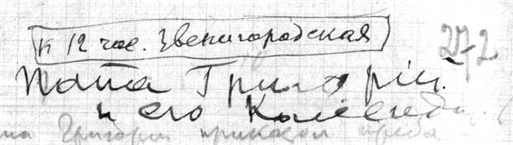 к 12 час. Звенигородская
27-2
Папа Григорій
и его Календ
Григорий приказал